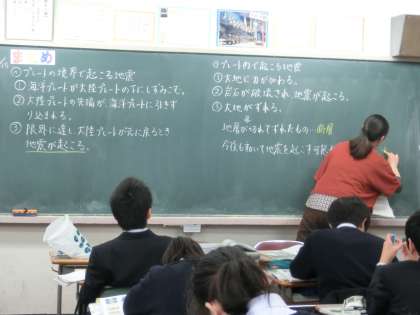 まとめ
○プレートの境界で起こる地震
① 海洋プレートが大陸プレートの下にしずみこむ。
② 大陸プレートの先端が、海洋プレートに引きず
り込まれる。
③ 限界に達し大陸プレートが元に戻るとき
地震が起こる。
○プレート内で起こる地震
① 大地に力がかわる。
② 岩石が破壊され、地震が起こる。
③ 大地がずれる。
地層がずれてずれたもの…断層
今後も動いて地震を起こす